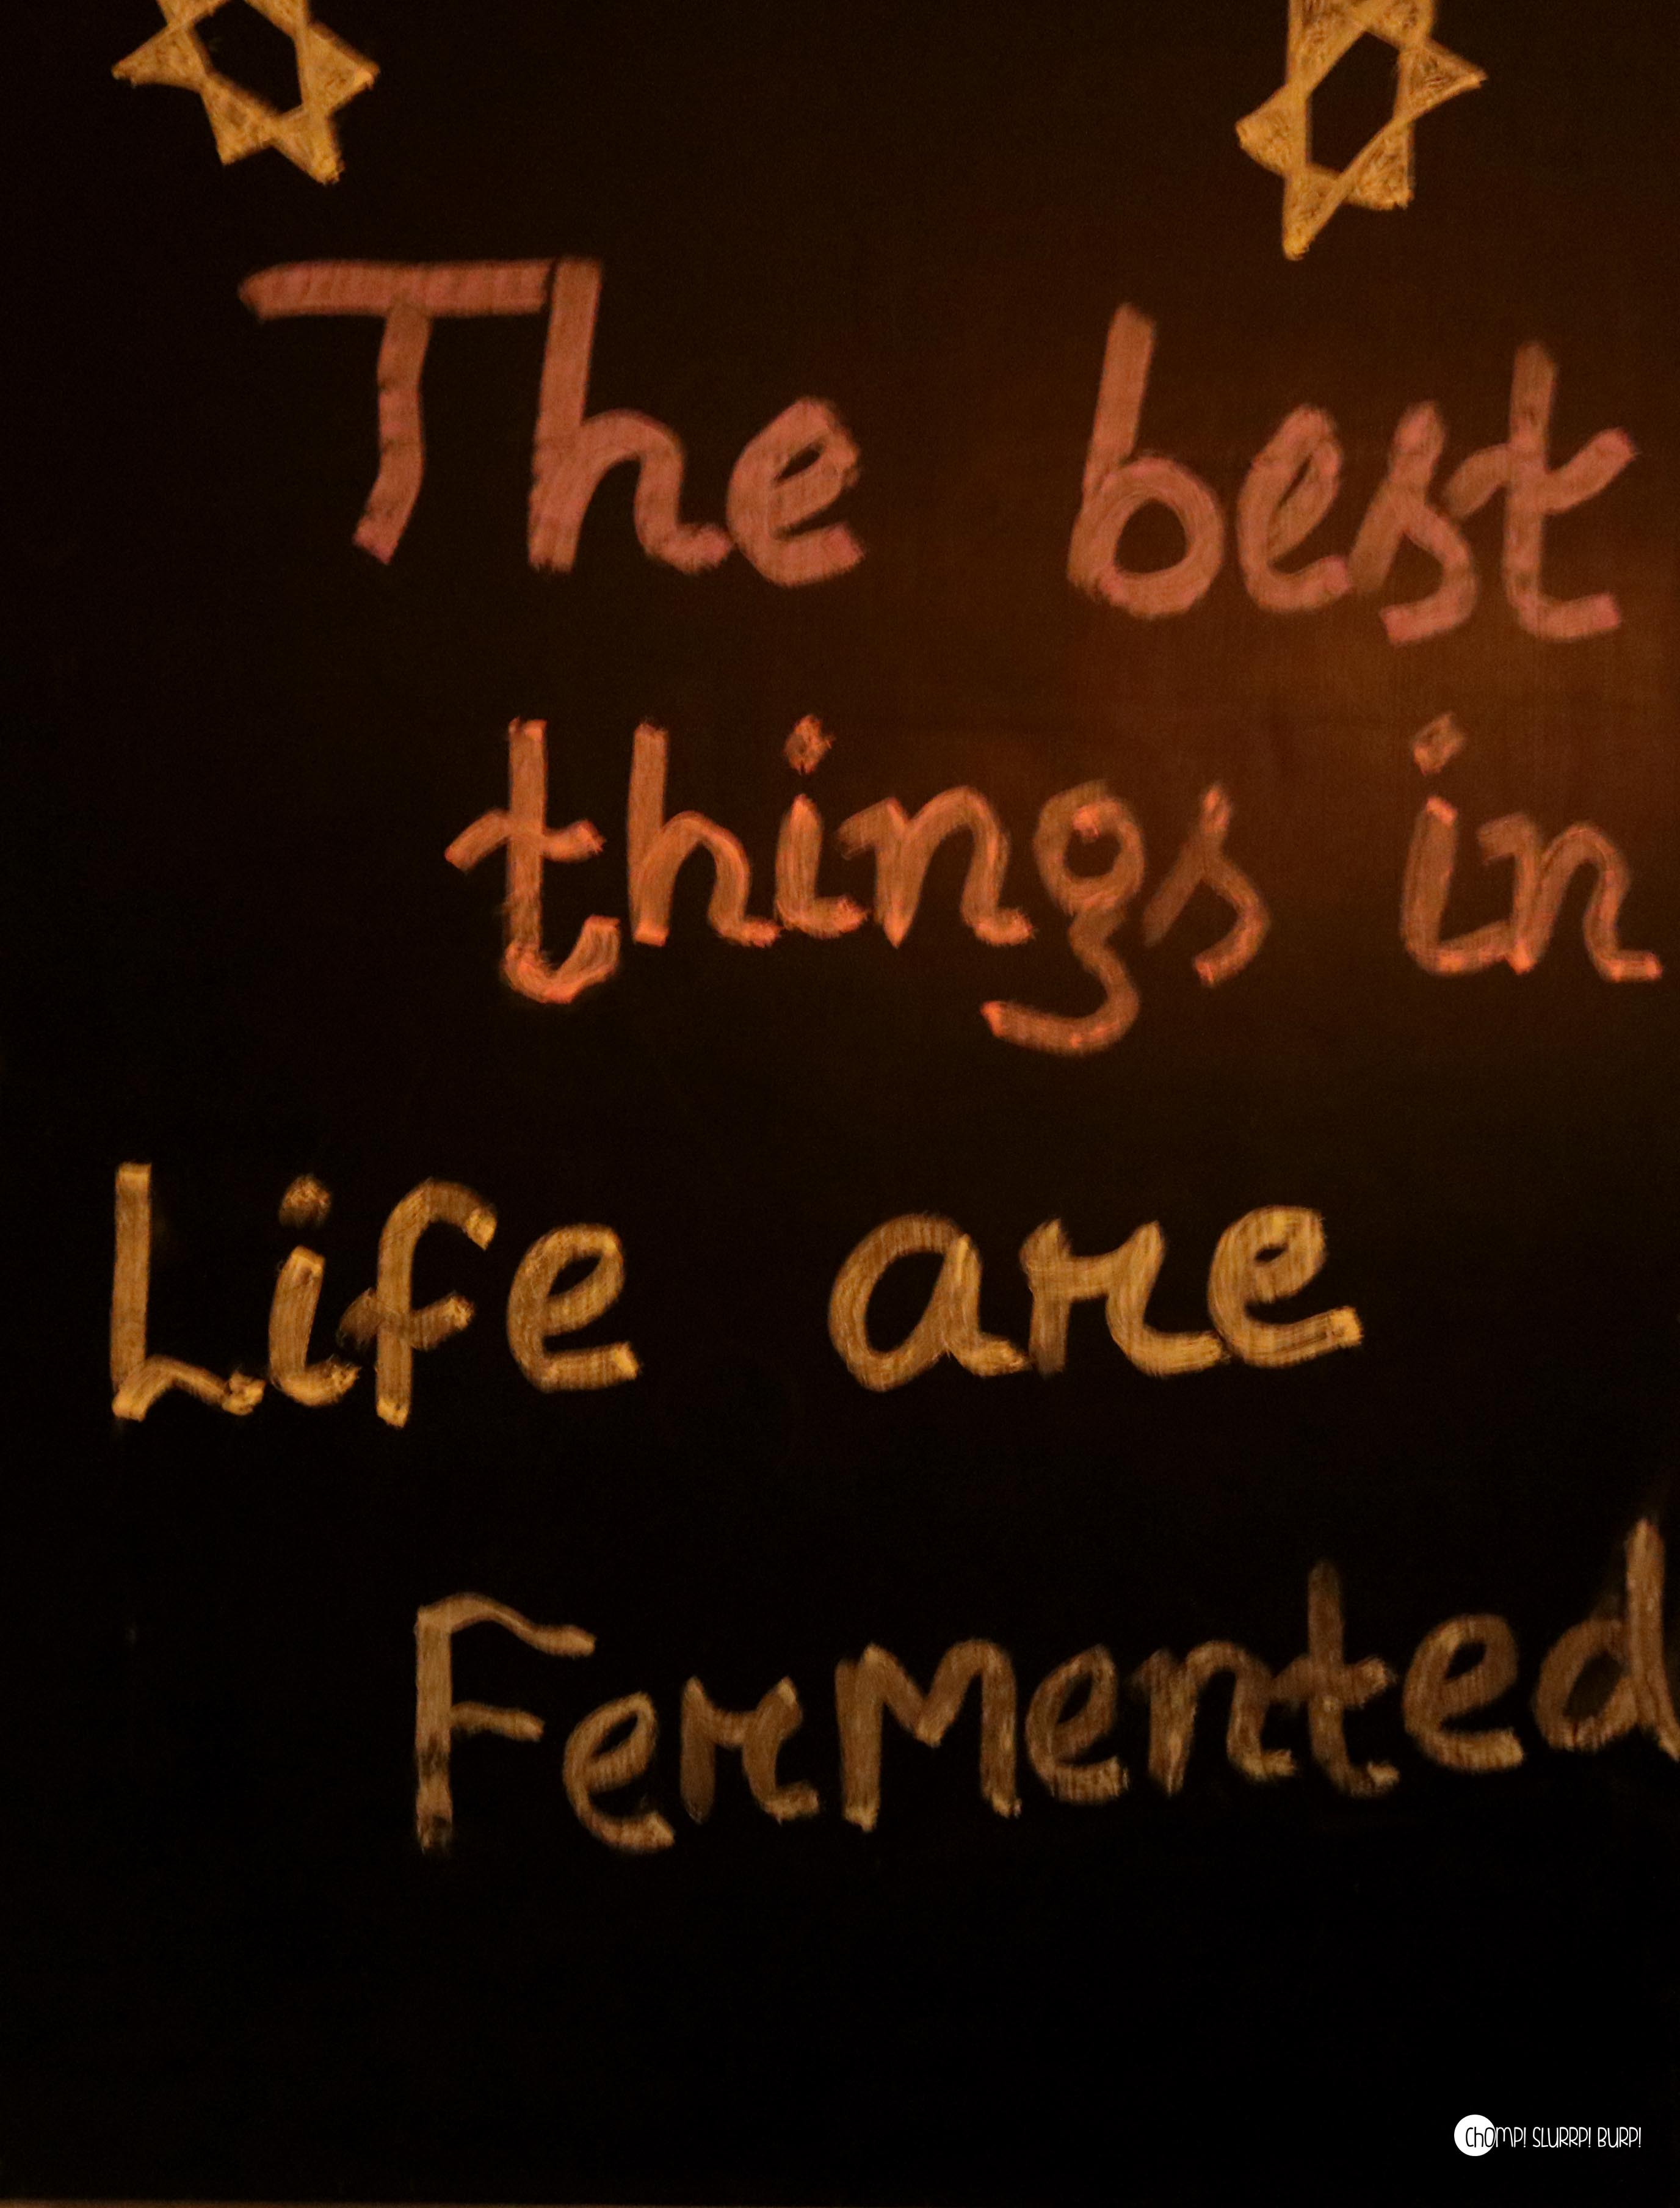 The best
things in
Life are
FerMented
ChOMP! SLURRP! BURP!